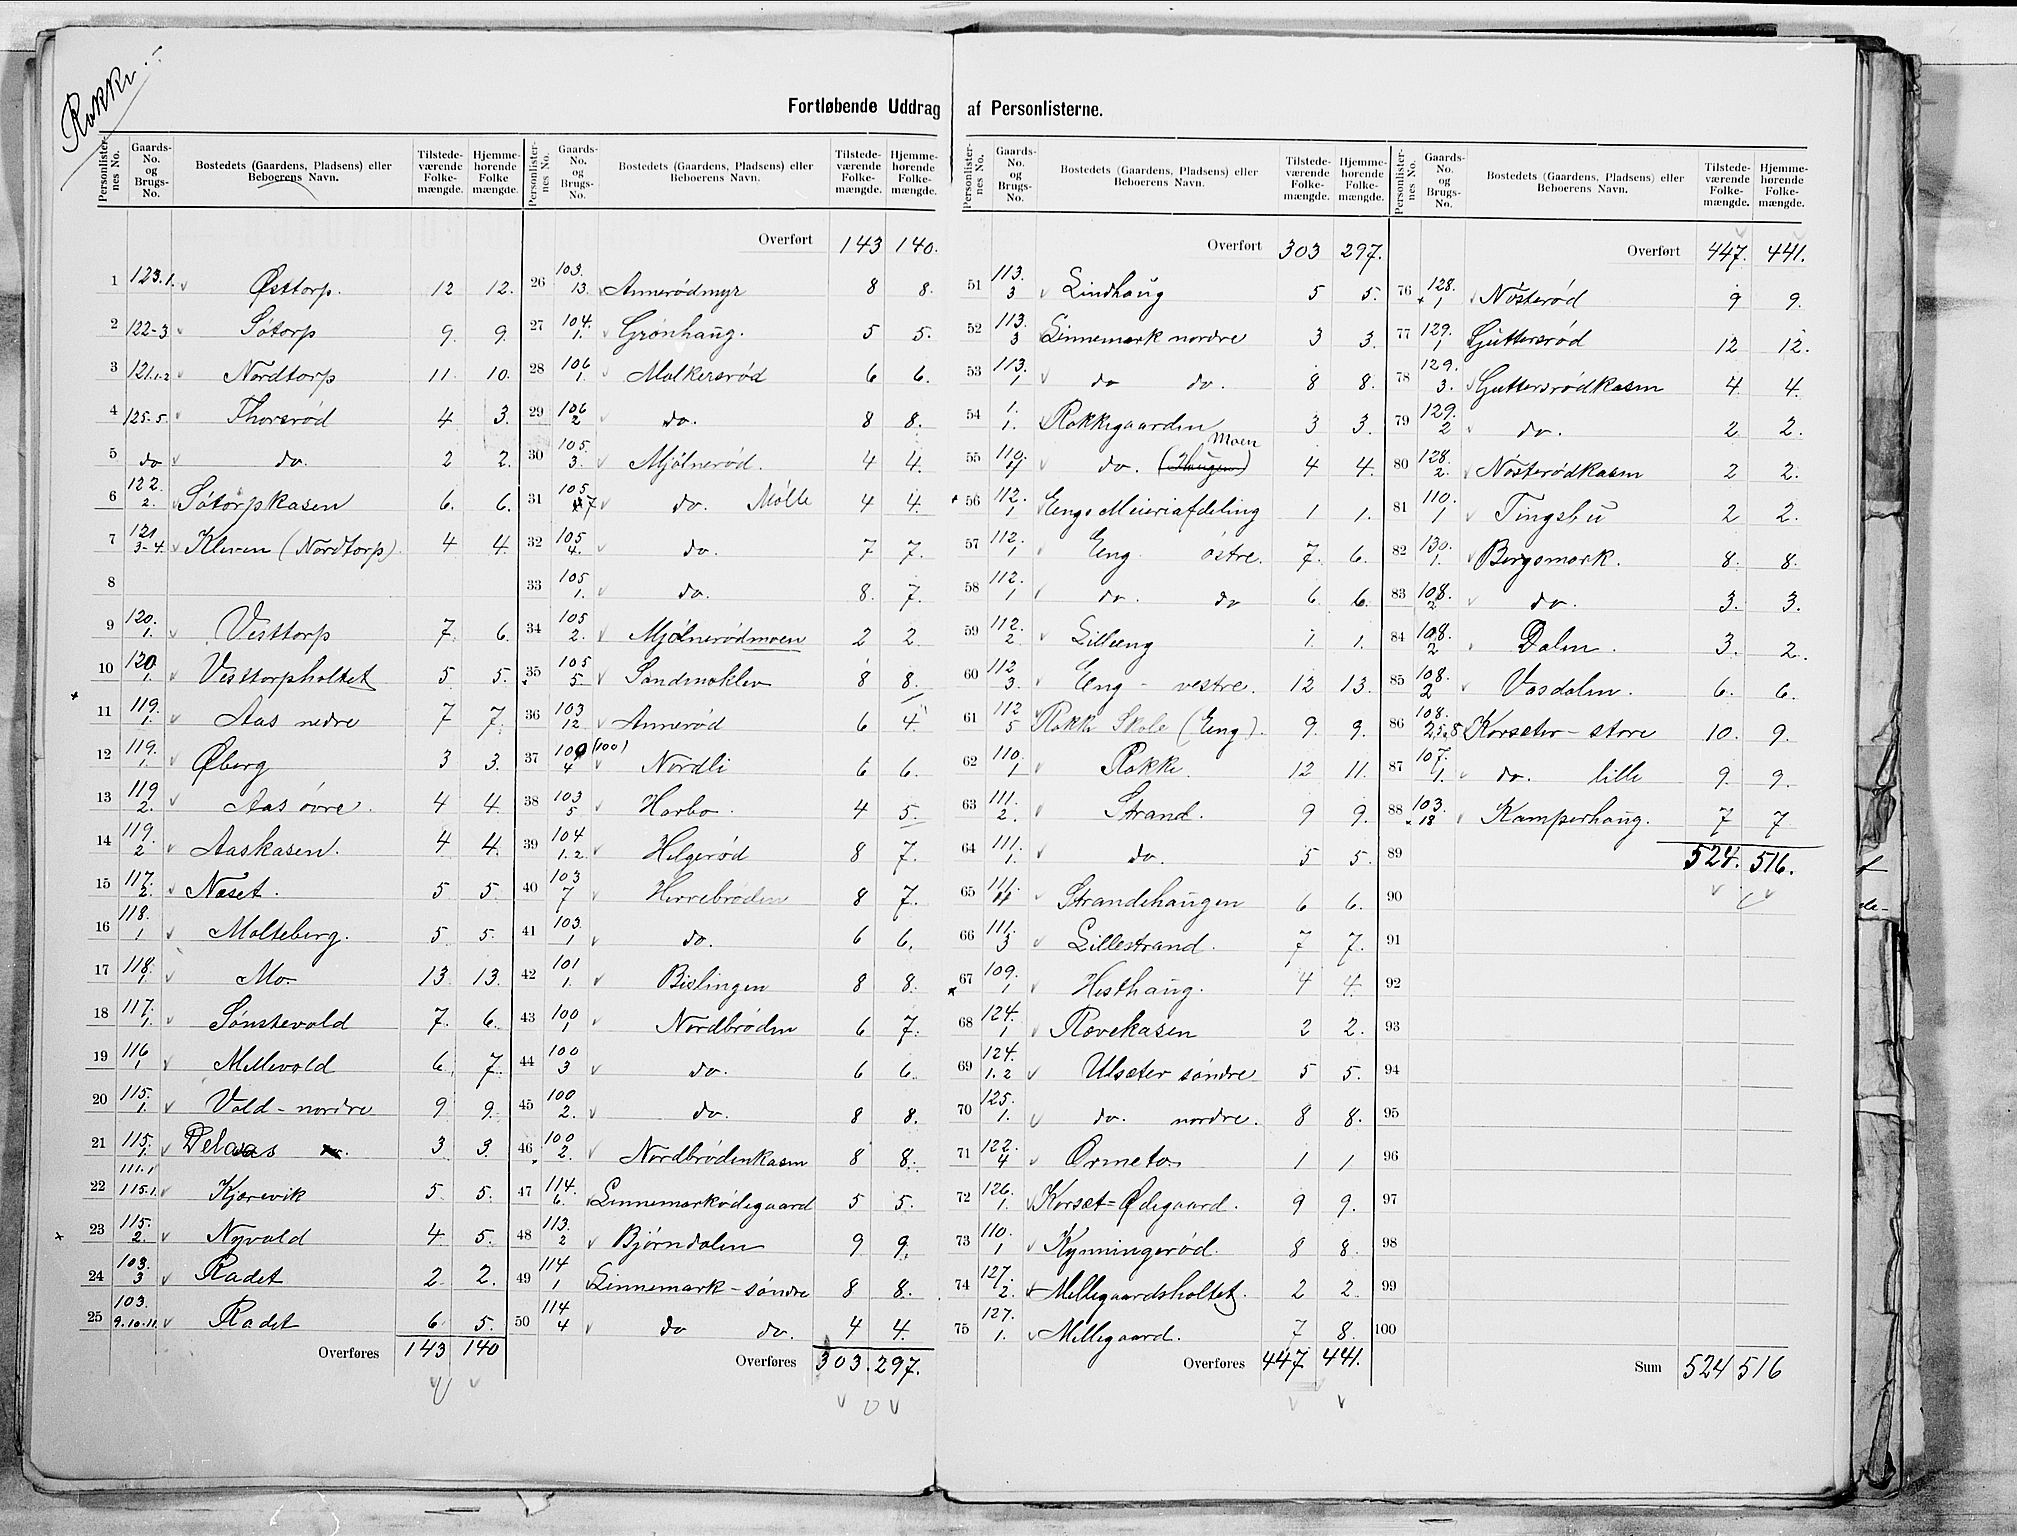 Rokke
Fortløbende Uddrag af Personlisterne.
Personlisternes No. Gaards-No. og Brugs-No. Bostedets (Gaardens, Pladsens) eller Beboerens Navn. Tilstedeværende Folkemængde. Hjemmehørende Folkemængde.
1 123.1. Østtorp. 12 12.
2 122-3 Søtorp 9. 9.
3 121.1-2 Nordtorp 11. 10.
4 125.5. Thorsrød 4 3.
5 do do. 2 2.
6 122. 2. Søtorpkasen 6. 6.
7 121 3-4. Kleven (Nordtorp). 4 4.
8
9 120. 1. Vesttorp 7. 6.
10 120 1. Vesttorpholtet 5 5.
11 119. 1. Aas nedre 7 7.
12 119. 1. Øberg 3 3.
13 119 2. Aas øvre. 4 4.
14 119. 2 Aaskasen. 4 4.
15 117. 2. Næset. 5 5.
16 118. 1 Molteberg. 5 5.
17 118. 1. Mo. 13 13.
18 117. 1. Sønstevold 7. 6.
19 116 1 Mellevold 6. 7.
20 115. 1. Vold - nordre 9 9.
21 115. 1. 111.1 Delaas 3 3.
22 115.1. Kjærevik 5 5.
23 115. 2. Nyvold 4 5.
24 103. 3 Radet 2 2.
25 103. 9.10.11. Radet 6 5.
Overføres 143 140
Personlisternes No. Gaards-No. og Brugs-No. Bostedets (Gaardens, Pladsens) eller Beboerens Navn. Tilstedeværende Folkemængde. Hjemmehørende Folkemængde.
Overført 143 140.
26 103. 13. Annerødmyr 8 8.
27 104. 1. Grønhaug. 5 5.
28 106 1. Molkersrød 6 6.
29 106 2 do. 8 8.
30 105. 3. Mjølnerød. 4 4.
31 105. 7 do. Mølle 4 4.
32 105 4. do. 7 7.
33 105 1. do. 8. 7.
34 105 2. Mjølnerødmoen 2 2
35 105 5 Sandmoklev 8 8.
36 103 12. Annerød 6 4.
37 100 (100) 4 Nordli 6 6.
38 103 5 Harbo. 4 5.
39 104 1.2. Helgerød 8 7.
40 103 7 Herrebrøden 8 7.
41 103 1 do. 6 6.
42 101 1. Bislingen 8 8.
43 100 1 Nordbrøden 6 7.
44 100 3 do. 6 6.
45 100 2. do. 8 8.
46 100 2. Nordbrødenkasen 8 8.
47 114. 6. Linnemarkødegaard 5 5.
48 113. 2 Bjørndalen 9 9.
49 114 1 Linnemark - søndre 8 8.
50 114 4 do do. 4 4.
Overføres 303. 297.
Personlisternes No. Gaards-No. og Brugs-No. Bostedets (Gaardens, Pladsens) eller Beboerens Navn. Tilstedeværende Folkemængde. Hjemmehørende Folkemængde.
Overført 303 297.
51 113. 3 Lindhaug 5 5.
52 113. 3 Linnemark nordre 3 3.
53 113. 1 do do. 8 8.
54 1. 1. Rokkegaarden 3 3.
55 110. do. (Haugen) Moen 4 4.
56 112. 1 Enge Meieriafdeling 1 1.
57 112. 1 Eng østre. 7. 6.
58 112. 1 do. do 6 6.
59 112. 2. Lilleeng 1 1.
60 112 3. Eng - vestre. 12 13.
61 112 5 Rokke Skole (Eng). 9 9.
62 110. 1 Rokke. 12 11.
63 111. 2. Strand. 9 9.
64 111. 1. do. 5 5.
65 111. Strandehaugen 6 6.
66 111. 3 Lillestrand. 7 7.
67 109. 1 Hesthaug. 4 4.
68 124. 1 Rovekasen 2 2.
69 124. 1.2 Ulsæter søndre 5 5.
70 125. 1. do. nordre. 8 8.
71 122. 4 Ormeto 1 1
72 126. 1. Korsæt=Ødegaard. 9 9.
73 110. 1 Kynningsrød. 8 8.
74 127. 2. Mellegaardsholtet. 2 2
75 127. 1. Mellegaard. 7 8.
Overføres 447 441.
Personlisternes No. Gaards-No. og Brugs-No. Bostedets (Gaardens, Pladsens) eller Beboerens Navn. Tilstedeværende Folkemængde. Hjemmehørende Folkemængde.
Overført 447. 441.
76 128. 1 Nøsterød 9 9.
77 129. 1 Guttersrød 12 12.
78 129. 3. Guttersrødkasen 4 4.
79 129. 2 do. 2 2.
80 128. 2. Nøsterødkasen 2 2.
81 110. 1 Tingsbu 2 2.
82 130. 1. Bergsmark. 8. 8.
83 108. 2 do. 3. 3.
84 108. 2 Dalen. 3. 2.
85 108. 2 Vasdalen. 6. 6.
86 108. Korsæter - store 10. 9.
87 107. 1. do. lille 9. 9.
88 103. 18 Kamperhaug. 7 7
89 524. 516.
90
91
92
93
94
95
96
97
98
99
100
Sum 524 516